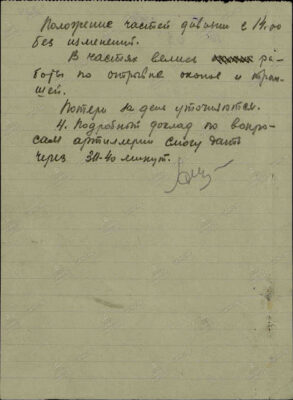 Положение частей дивизии с 14.00
без изменений.
В частях велись ра-
боты по отрывке окопов и тран-
шей.
Потери за день уточняются.
4. Подробный доклад по вопро-
сам артиллерии смогу дать
через 30-40 минут.